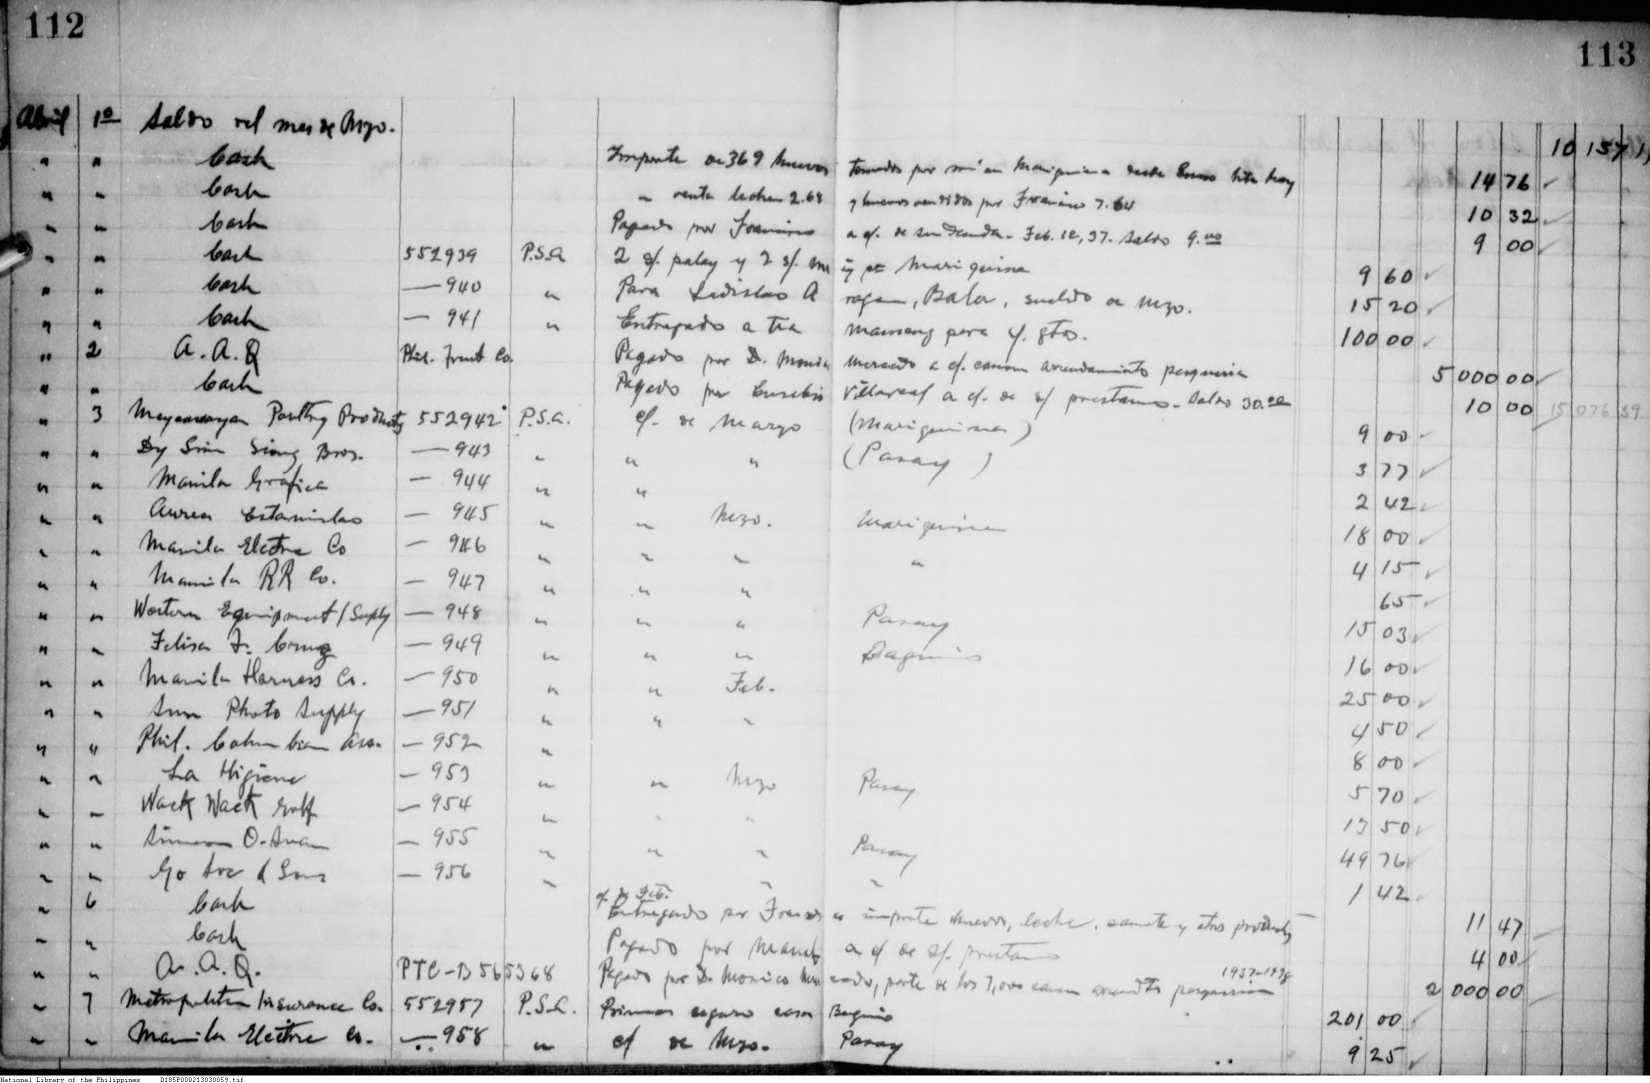 112
113
Abril 1º Saldo del mes de Mzo. 10 157
" " Cash Importe de 369 huevos tomados por mi en Mariquina desde Enero hta hoy 14 76
" " Cash " venta leche 2.68 y huevos vendidos por Francisco 7.64 10 32
" " Cash Pagado por Francisco a c/. de su deuda. Feb. 12, 37. Saldo 9.00 9 00
" " Cash 552939 P.S.A 2 s/. palay y 2 s/. Mariquina 9 60
" " Cash — 940 " Para Ladislao Aragon, Baler, sueldo de Mzo. 15 20
" " Cash — 941 " Entregado a tia Mameng para c/. gtos. 100 00
" 2 A.A.Q Phil. Trust Co. Pagado por D. Monico Mercado a c/. canon arrendamiento pesqueria 5 000 00
" " Cash Pagado por Eusebio Villareal a c/. de s/ prestamo. Saldo 30.00 10 00 15,076 39
" 3 Meycauayan Poultry Products 552942 P.S.A. c/. de Marzo (Mariquina) 9 00
" " Dy Siong Bros. — 943 " " " (Pasay) 3 77
" " Manila Grafica — 944 " " 2 42
" " Aurea Estanislao — 945 " " Mzo. Mariquina 18 00
" " Manila Electric Co — 946 " " " " 4 15
" " Manila RR Co. — 947 " " " 65
" " Western Equipment / Supply — 948 " " " Pasay 15 03
" " Felisa F. Cruz — 949 " " " Baguio 16 00
" " Manila Harness Co. — 950 " " Feb. 25 00
" " Sun Photo Supply — 951 " " " 4 50
" " Phil. Columbian Assn. — 952 " 8 00
" " La Higiene — 953 " " Mzo Pasay 5 70
" " Wack Wack Golf — 954 " " " 13 50
" " Simeon O. — 955 " " " Pasay 49 76
" " Go Soc & Sons — 956 " c/ de Feb. " " 1 42
" 6 Cash Entregado por Francisco importe huevos, leche, zacate y otros productos 11 47
" " Cash Pagado por Manuel a c/ de s/. prestamo 4 00
" " A.A.Q. PTC-B565368 Pagado por D. Monico Mercado, parte de los 7,000 canon arrendto pesqueria 1937-1938 2 000 00
" 7 Metropolitan Insurance Co. 552957 P.S.A. Primas seguro casa Baguio 201 00
" " Manila Electric Co. — 958 " c/ de Mzo. Pasay 9 25
National Library of the Philippines D185P000213030059.tif